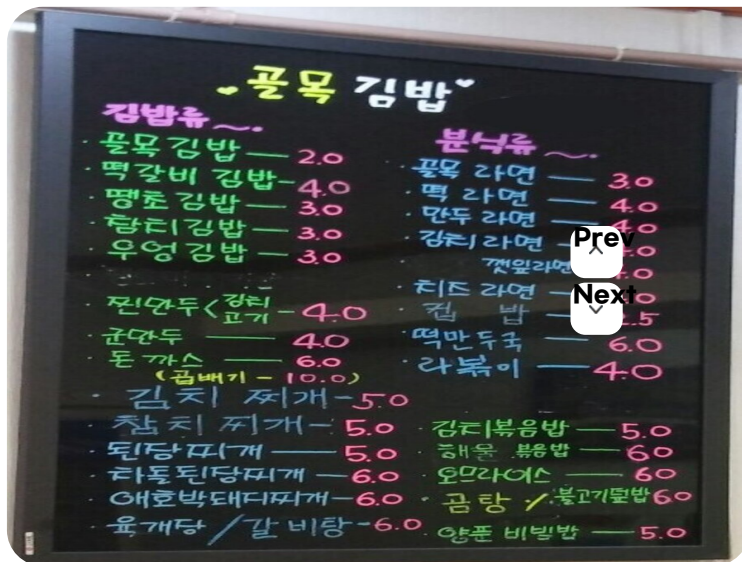 골목 김밥
김밥류~.
· 골목김밥 — 2.0
· 떡갈비 김밥 - 4.0
· 땡초김밥 — 3.0
· 참치김밥 — 3.0
· 우엉김밥 — 3.0
· 찐만두 < 김치 고기 - 4.0
· 군만두 — 4.0
· 돈까스 — 6.0
(곱배기 - 10.0)
· 김치 찌개 - 5.0
· 참치 찌개 - 5.0
· 된장찌개 — 5.0
· 차돌된장찌개 - 6.0
· 애호박돼지찌개 - 6.0
· 육개장 / 갈비탕 - 6.0
분식류~.
· 골목 라면 — 3.0
· 떡 라면 — 4.0
· 만두 라면 — 4.0
· 김치라면 - .0
깻잎라면 .0
· 치즈 라면 — 0
· 컵 밥 — .5
· 떡만두국 — 6.0
· 라볶이 — 4.0
· 김치볶음밥 — 5.0
· 해물 볶음밥 — 6.0
· 오므라이스 — 60
· 곰탕 / 불고기덮밥 6.0
· 양푼 비빔밥 — 5.0
Prev
Next